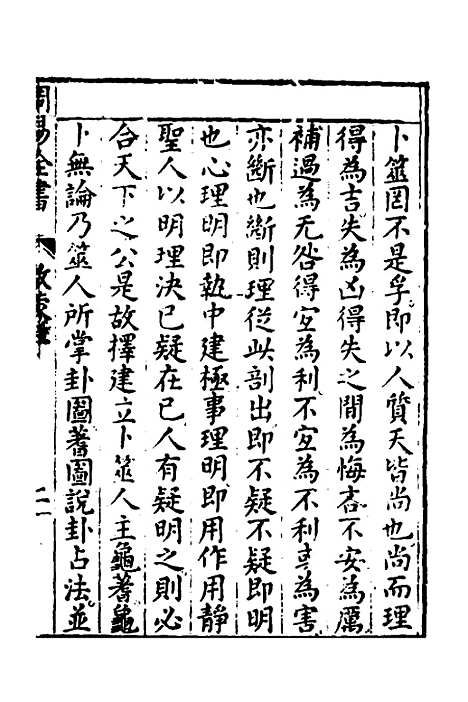 卜筮罔不是孚即以人質天皆尚也尚而理
得為吉失為凶得失之間為悔吝不安為厲
補過為无咎得宜為利不宜為不利害為害
亦斷也斷則理從此剖出即不疑不疑即明
也心理明即執中建極事理明即用作用靜
聖人以明理決已疑在已人有疑明之則必
合天下之公是故擇建立卜筮人主龜蓍龜
卜無論乃筮人所掌卦圖蓍圖說卦占法並
周易全書
二